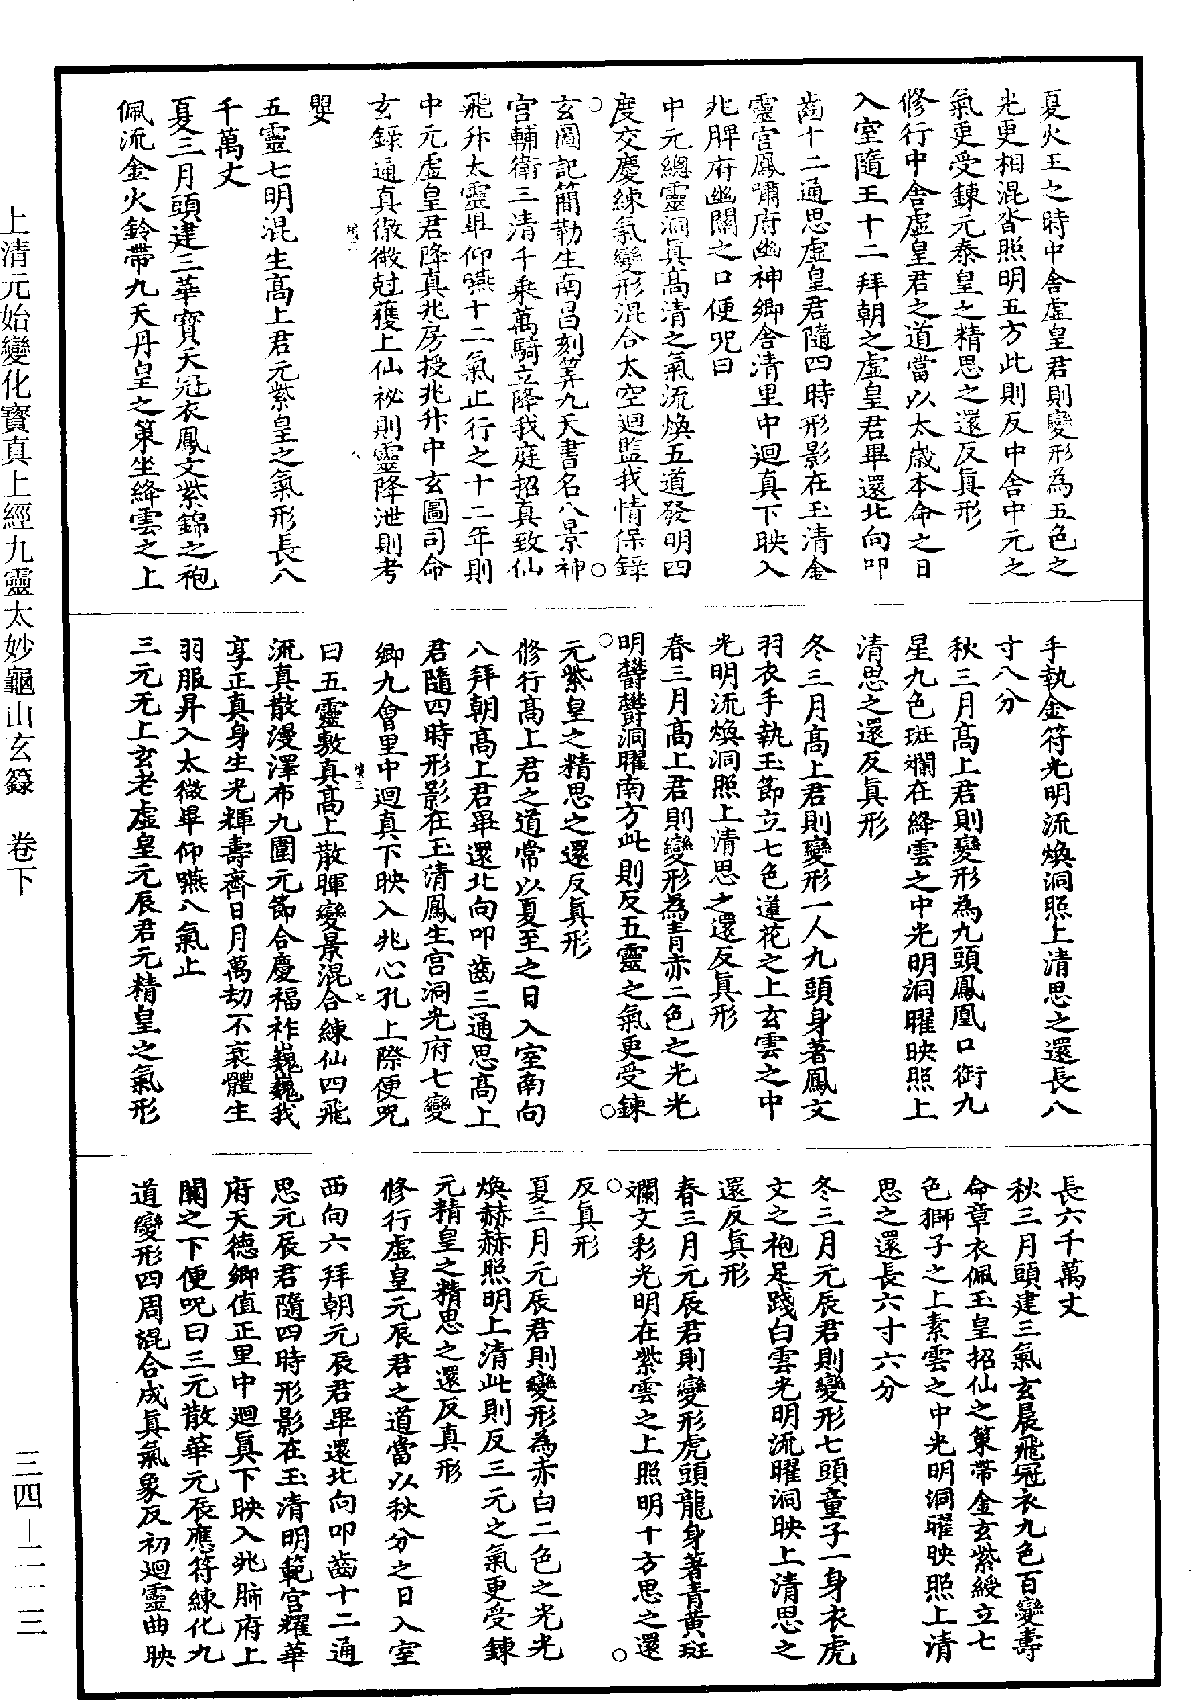 夏火王之時中舍虛皇君則變形為五色之
光更相混沓照明五方此則反中舍中元之
氣更受鍊元泰皇之精思之還反真形
修行中舍虛皇君之道當以太歲本命之日
入室隨王十二拜朝之虛皇君畢還北向叩
齒十二通思虛皇君隨四時形影在玉清金
靈宮鳳嘯府幽神鄉舍清里中迴真下映入
兆脾府幽關之口便咒曰
中元總靈洞真高清之氣流煥五道發明四
度交慶練氣變形混合太空迴監我情保錄
玄圖記簡勒生南昌刻筭九天書名八景神
宮輔衛三清千乘萬騎立降我庭招真致仙
飛升太靈畢仰嚥十二氣止行之十二年則
中元虛皇君降真兆房授兆升中玄圖司命
玄錄通真徹微尅獲上仙祕則靈降泄則考
嬰
五靈七明混生高上君元紫皇之氣形長八
千萬丈
夏三月頭建三華寶天冠衣鳳文紫錦之袍
佩流金火鈴帶九天丹皇之策坐絳雲之上
手執金符光明流煥洞照上清思之還長八
寸八分
秋三月高上君則變形為九頭鳳凰口銜九
星九色斑斕在絳雲之中光明洞曜映照上
清思之還反真形
冬三月高上君則變形一人九頭身著鳳文
羽衣手執玉節立七色蓮花之上玄雲之中
光明流煥洞照上清思之還反真形
春三月高上君則變形為青赤二色之光光
明欝欝洞曜南方此則反五靈之氣更受鍊
元紫皇之精思之還反真形
修行高上君之道常以夏至之日入室南向
八拜朝高上君畢還北向叩齒三通思高上
君隨四時形影在玉清鳳生宮洞光府七變
鄉九會里中迴真下映入兆心孔上際便咒
曰五靈敷真高上散暉變景混合練仙四飛
流真散漫澤布九圍元節合慶福祚巍巍我
享正真身生光輝壽齊日月萬劫不衰體生
羽服昇入太微畢仰嚥八氣止
三元无上玄老虛皇元辰君元精皇之氣形
長六千萬丈
秋三月頭建三氣玄晨飛冠衣九色百變壽
命章衣佩玉皇招仙之策帶金玄紫綬立七
色獅子之上素雲之中光明洞曜映照上清
思之還長六寸六分
冬三月元辰君則變形七頭童子一身衣虎
文之袍足踐白雲光明流曜洞映上清思之
還反真形
春三月元辰君則變形虎頭龍身著青黃斑
斕文彩光明在紫雲之上照明十方思之還
反真形
夏三月元辰君則變形為赤白二色之光光
煥赫赫照明上清此則反三元之氣更受鍊
元精皇之精思之還反真形
修行虛皇元辰君之道當以秋分之日入室
西向六拜朝元辰君畢還北向叩齒十二通
思元辰君隨四時形影在玉清明範宮耀華
府天德鄉值正里中迴真下映入兆肺府上
關之下便咒曰三元散華元辰應符練化九
道變形四周混合成真氣象反初迴靈曲映
上清元始變化寶真上經九靈太妙龜山玄籙 卷下
三四—二一三